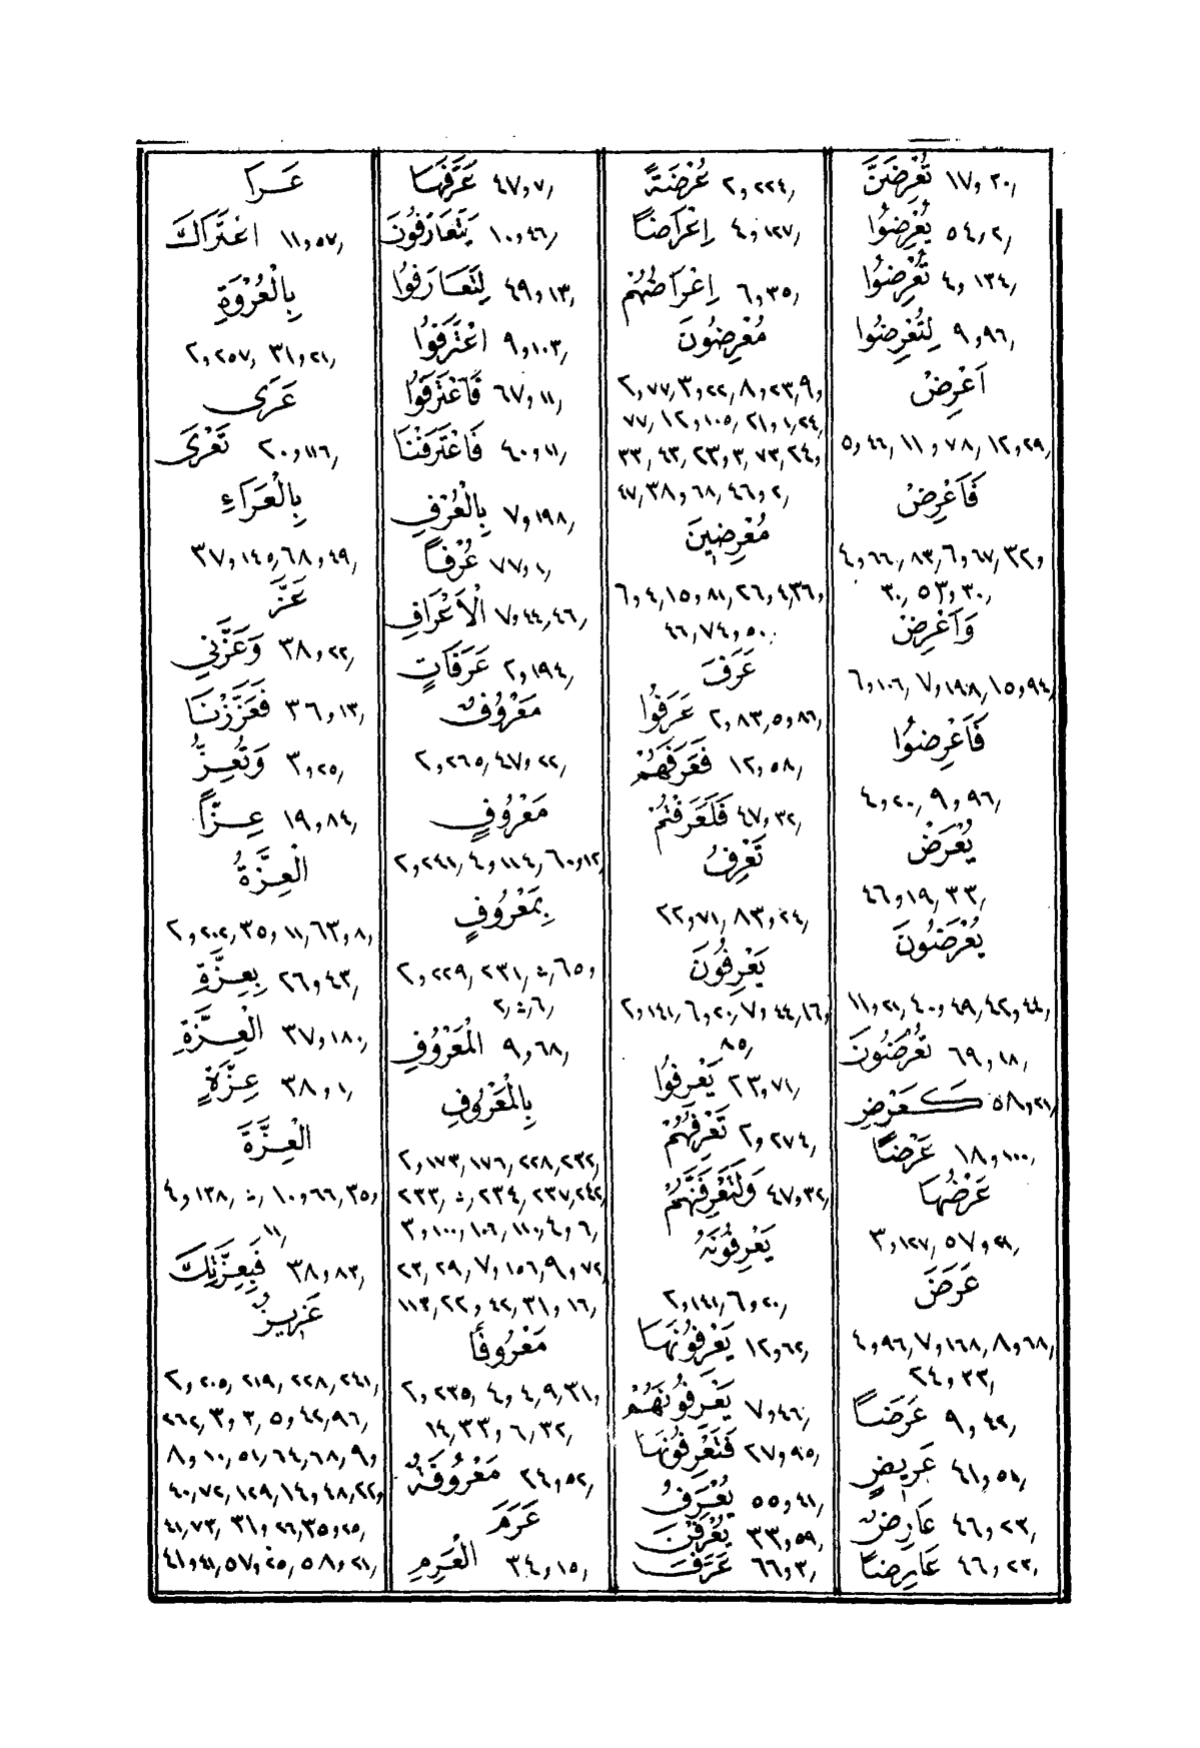 تُعْرِضَنَّ ١٧,٢٠,
يُعْرِضُوا ٥٤,٢,
تُعْرِضُوا ٤,١٣٤,
لِتُعْرِضُوا ٩,٩٦,
اَعْرِضْ
٥,٤٦, ١١,٧٨, ١٢,٢٩,
فَاَعْرِضْ
٤,٦٦, ٨٣, ٦,٦٧, ٣٢,
٣٠, ٥٣,٣٠,
وَاَعْرِضْ
٦,١٠٦, ٧,١٩٨, ١٥,٩٤,
فَاَعْرِضُوا
٤,٢٠, ٩,٩٦,
يُعْرَضُ
٤٦,١٩, ٣٣,
يُعْرَضُونَ
١١,٢١, ٤٠,٤٩, ٤٢,٤٤,
تُعْرَضُونَ ٦٩,١٨,
كَعَرْضِ ٥٨,٢١,
عَرْضًا ١٨,١٠٠,
عَرْضُهَا
٣,١٢٧, ٥٧,٢١,
عَرَضَ
٤,٩٦, ٧,١٦٨, ٨,٦٨,
٢٤,٣٣,
عَرَضًا ٩,٤٢,
عَرِيضٍ ٤١,٥١,
عَارِضٌ ٤٦,٢٣,
عَارِضًا ٤٦,٢٣,
عُرْضَةً ٢,٢٢٤,
اِعْرَاضًا ٤,١٢٧,
اِعْرَاضُهُمْ ٦,٣٥,
مُعْرِضُونَ
٢,٧٧, ٣,٢٢, ٨,٢٣, ٩,
٧٧, ١٢,١٠٥, ٢١,١, ٢٤,
٣٣, ٤٣, ٢٣,٣, ٧٣, ٢٤,
٤٧, ٣٨,٦٨, ٤٦,٢,
مُعْرِضِينَ
٦,٤, ١٥,٨١, ٢٦,٤, ٣٦,
٤٦, ٧٤,٥٠,
عَرَفَ
عَرَفُوا ٢,٨٣, ٥,٨٦,
فَعَرَفَهُمْ ١٢,٥٨,
فَلَعَرَفْتَهُمْ ٤٧,٣٢,
تَعْرِفُ
٢٢,٧١, ٨٣,٢٤,
يَعْرِفُونَ
٢,١٤١, ٦,٢٠, ٧,٤٤, ١٦,
٨٥,
يَعْرِفُوا ٢٣,٧١,
تَعْرِفُهُمْ ٢,٢٧٤,
وَلَتَعْرِفَنَّهُمْ ٤٧,٣٢,
يَعْرِفُونَهُ
٢,١٤١, ٦,٢٠,
يَعْرِفُونَهَا ١٢,٦٢,
يَعْرِفُونَهُمْ ٧,٤٦,
فَتَعْرِفُونَهَا ٢٧,٩٥,
يُعْرَفُ ٥٥,٤١,
يُعْرَفْنَ ٣٣,٥٩,
عَرَّفَ ٦٦,٣,
عَرَّفَهَا ٤٧,٧,
يَتَعَارَفُونَ ١٠,٤٦,
لِتَعَارَفُوا ٤٩,١٣,
اعْتَرَفُوا ٩,١٠٣,
فَاعْتَرَفُوا ٦٧,١١,
فَاعْتَرَفْنَا ٤٠,١١,
بِالْعُرْفِ ٧,١٩٨,
عُرْفًا ٧٧,١,
الْاَعْرَافِ ٧,٤٤, ٤٦,
عَرَفَاتٍ ٢,١٩٤,
مَعْرُوفٌ
٢,٢٦٥, ٤٧,٢٢,
مَعْرُوفٍ
٢,٢٤١, ٤,١١٤, ٦٠,١٢,
بِمَعْرُوفٍ
٢,٢٢٩, ٢٣١, ث, ٦٥,
٢,ث,٦,
الْمَعْرُوفِ ٩,٦٨,
بِالْمَعْرُوفِ
٢,١٧٣, ١٧٦, ٢٢٨, ٢٣٢,
٢٣٣, ث, ٢٣٤, ٢٣٧, ٢٤٢,
٣,١٠٠, ١٠٦, ١١٠, ٤,٦,
٢٣, ٢٩, ٧,١٥٦, ٩,٧٢,
١١٣, ٢٢,٤٢, ٣١,١٦,
مَعْرُوفًا
٢,٢٣٥, ٤,٤, ٩, ٣١,
١٤, ٣٣,٦, ٣٢,
مَعْرُوفَةٌ ٢٤,٥٢,
عَرَمَ
الْعَرِمِ ٣٤,١٥,
عَرَا
اعْتَرَاكَ ١١,٥٧,
بِالْعُرْوَةِ
٢,٢٥٧, ٣١,٢١,
عَرَى
تَعْرَى ٢٠,١١٦,
بِالْعَرَاءِ
٣٧,١٤٥, ٦٨,٤٩,
عَزَّ
وَعَزَّنِي ٣٨,٢٢,
فَعَزَّزْنَا ٣٦,١٣,
وَتُعِزُّ ٣,٢٥,
عِزًّا ١٩,٨٤,
الْعِزَّةُ
٢,٢٠٢, ٣٥,١١, ٦٣,٨,
بِعِزَّةِ ٢٦,٤٣,
الْعِزَّةِ ٣٧,١٨٠,
عِزَّةٍ ٣٨,١,
الْعِزَّةَ
٤,١٣٨, ث, ١٠,٦٦, ٣٥,
١١,
فَبِعِزَّتِكَ ٣٨,٨٣,
عَزِيزٌ
٢,٢٠٥, ٢١٩, ٢٢٨, ٢٤١,
٢٦٢, ٣,٣, ٥,٤٢, ٩٦,
٨,١٠, ٥١, ٦٤, ٦٨, ٩,
٤٠, ٧٢, ١٢٩, ١٤,٤٨, ٢٢,
٤١, ٧٣, ٣١,٢٦, ٣٥,٢٥,
٤١,٤١, ٥٧,٢٥, ٥٨,٢١,